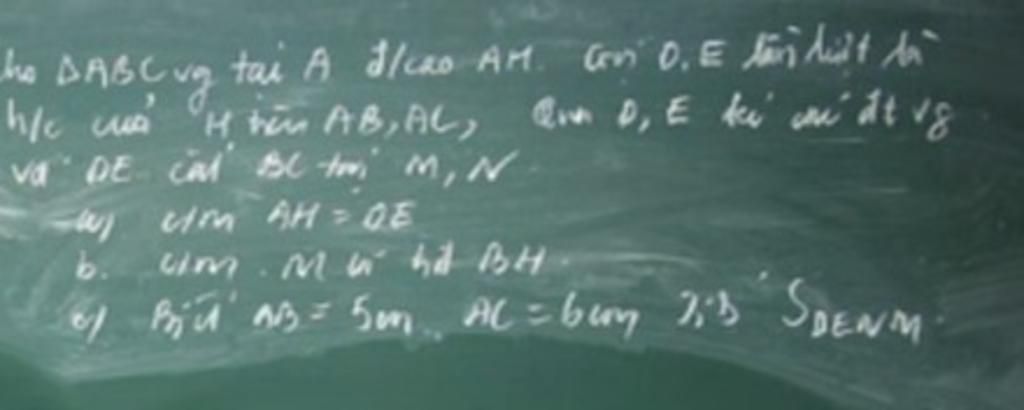 ho ΔABC vg tại A đ/cao AH. Gọi D, E lần lượt là
h/c của H trên AB, AC, Qua D, E kẻ các đt vg
vs DE cắt BC tại M, N
a) c/m AH = DE
b. c/m . M là trđ BH.
c) Biết AB = 5cm, AC = 6cm S DENM